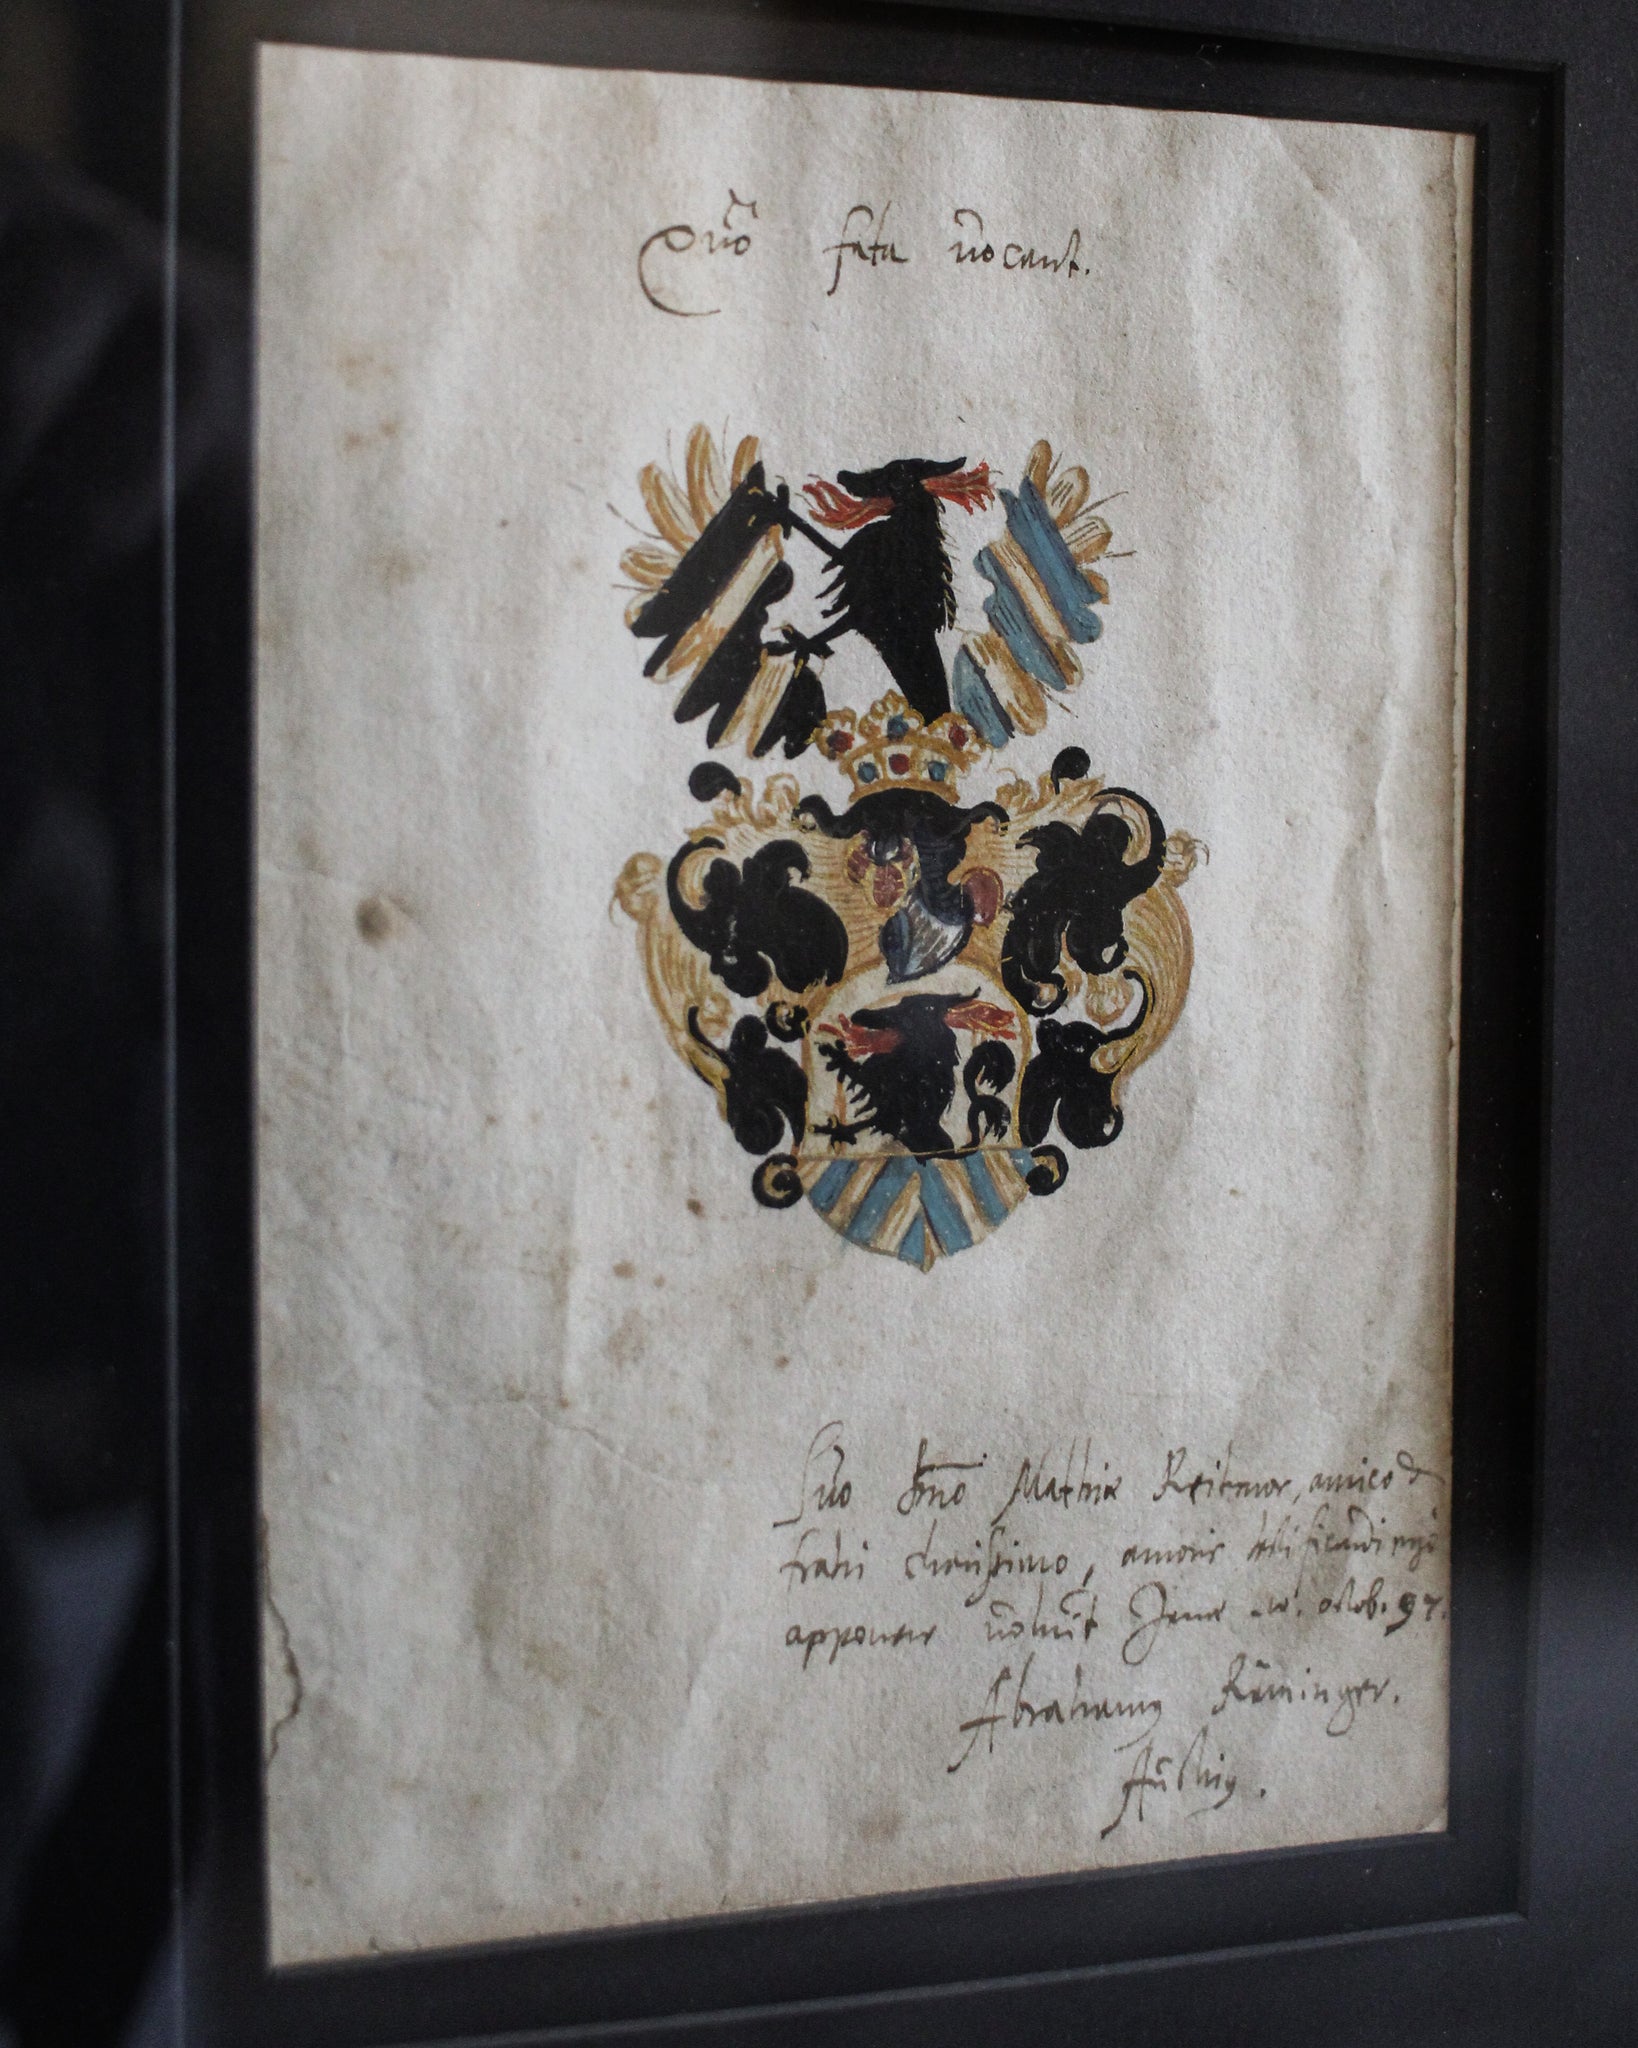 Quo fata vocant.
Suo Hmo Matthiæ Reitmor, amico &
fratri charissimo, amoris testificandi ergò
apponere voluit Jenæ octob. 97.
Abrahamus Rëminger.
Austrius.